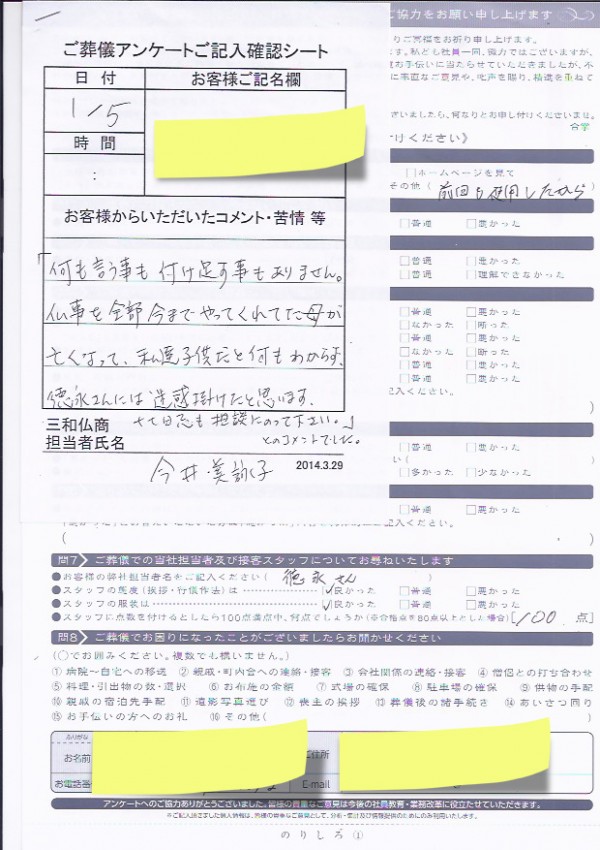 ご協力をお願い申し上げます
ご葬儀アンケートご記入確認シート
日付
お客様ご記名欄
1/5
時間
:
お客様からいただいたコメント・苦情 等
「何も言う事も付け足す事もありません。
仏事を全部今までやってくれてた母が
亡くなって、私達子供だと何もわからず、
徳永さんには迷惑掛けたと思います。
七七日忌も相談にのって下さい。」
とのコメントでした。
三和仏商
担当者氏名
今井・美詠子
2014.3.29
りご冥福をお祈り申し上げます。
合掌
けください》
□ホームページを見て
その他(前回も使用したから
□普通 □悪かった
□普通 □悪かった
□普通 □理解できなかった
□普通 □悪かった
□なかった □断った
□普通 □悪かった
□なかった □断った
□普通 □悪かった
□普通 □悪かった
記入ください。
)
□普通 □悪かった
い(
□多かった □少なかった
□普通 □悪かった
記入ください。
( )
問7 ご葬儀での当社担当者及び接客スタッフについてお尋ねいたします
●お客様の弊社担当者名をご記入ください( 徳永さん )
●スタッフの態度(挨拶・行儀作法)は ☑良かった □普通 □悪かった
●スタッフの服装は ☑良かった □普通 □悪かった
●スタッフに点数を付けるとしたら100点満点中、何点でしょうか(※合格点を80点以上とした場合)[100 点]
問8 ご葬儀でお困りになったことがございましたらお聞かせください
(○でお囲みください。複数でも構いません。)
①病院～自宅への移送 ②親戚・町内会への連絡・接客 ③会社関係の連絡・接客 ④僧侶との打ち合わせ
⑤料理・引出物の数・選択 ⑥お布施の金額 ⑦式場の確保 ⑧駐車場の確保 ⑨供物の手配
⑩親戚の宿泊先手配 ⑪遺影写真選び ⑫喪主の挨拶 ⑬葬儀後の諸手続き ⑭あいさつ回り
⑮お手伝いの方へのお礼 ⑯その他(
ふりがな
お名前
ご住所
お電話番
E-mail
アンケートへのご協力ありがとうございました。皆様の貴重なご意見は今後の社員教育・業務改革に役立たせていただきます。
※ご記入頂きました個人情報は、お客様の貴重なご意見として、分析・集計及び情報提供のためにのみ利用いたします。
のりしろ①